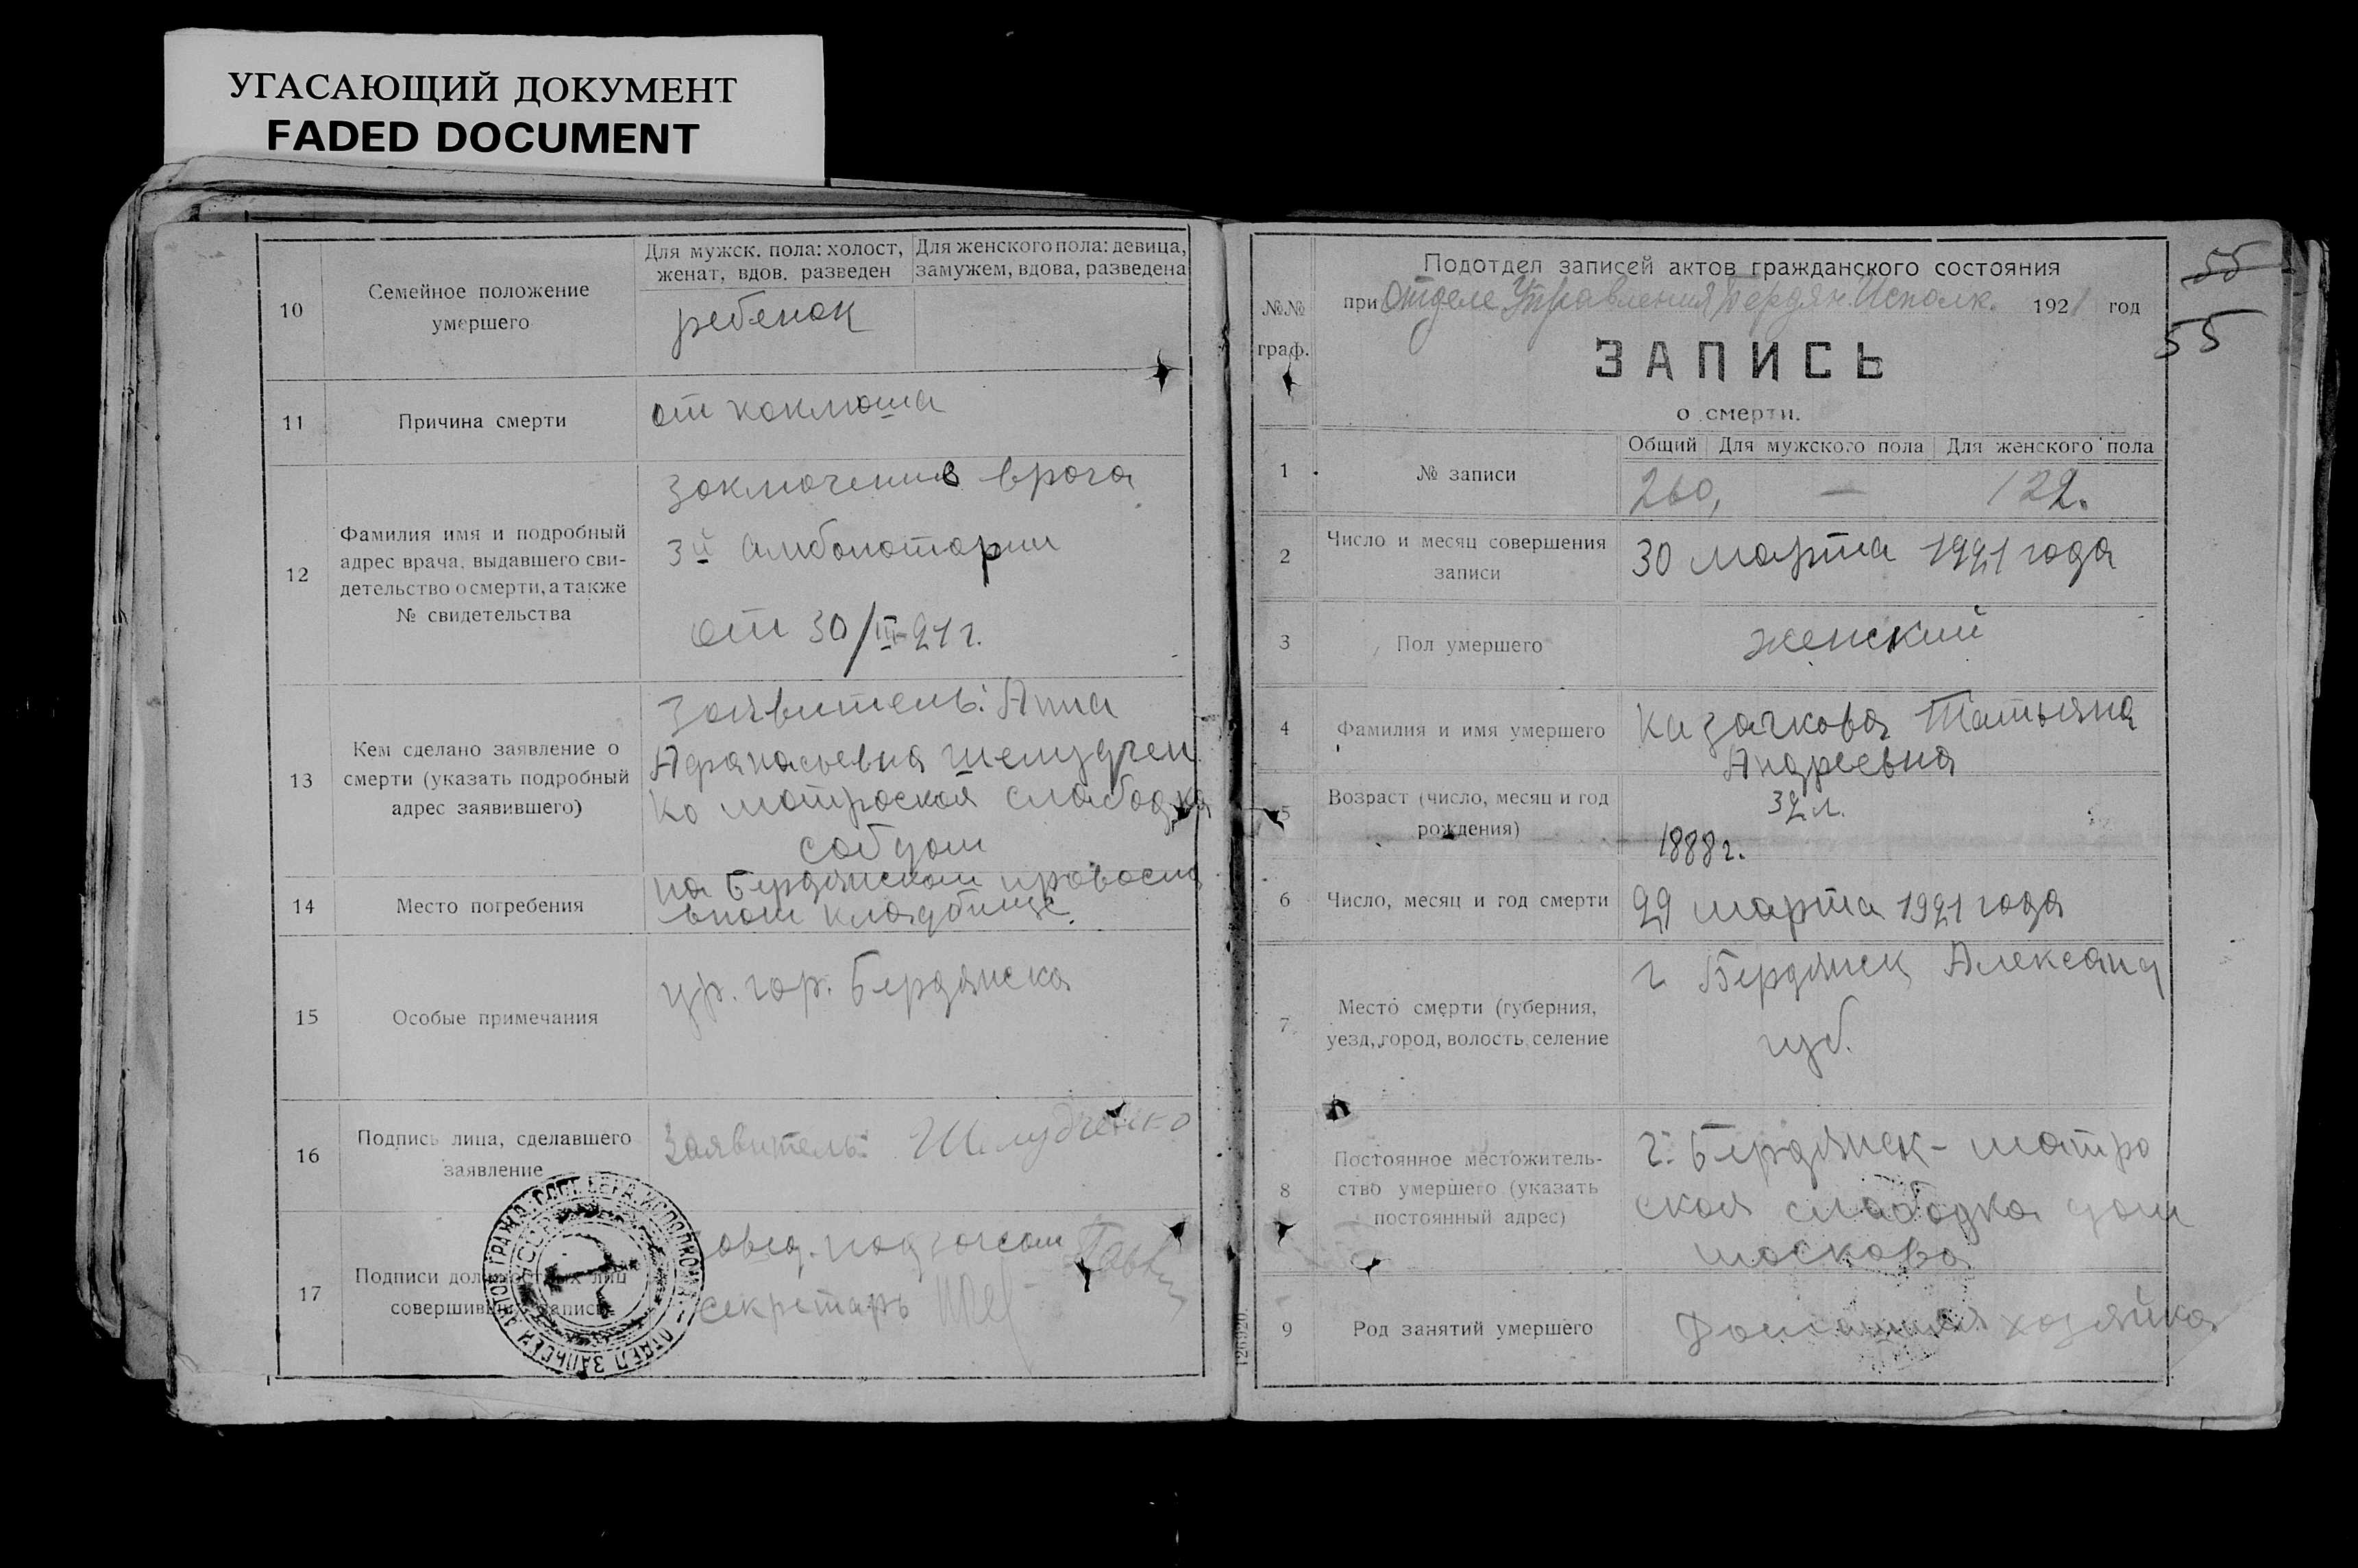 УГАСАЮЩИЙ ДОКУМЕНТ
FADED DOCUMENT
10
Семейное положение
умершего
Для мужск. пола: холост,
женат, вдов. разведен
Для женского пола: девица,
замужем, вдова, разведена
ребенок
11
Причина смерти
от коклюша
12
Фамилия имя и подробный
адрес врача, выдавшего сви-
детельство о смерти, а также
№ свидетельства
Заключение врача
3й Амболотории
от 30/III-21 г.
13
Кем сделано заявление о
смерти (указать подробный
адрес заявившего)
Заявитель: Анна
Афанасьевна Шелудчен
ко матроская слабодка
соб дом
14
Место погребения
на Бердянском православ
вном кладбище.
15
Особые примечания
гр. гор. Бердянска
16
Подпись лица, сделавшего
заявление
Заявитель: Шелудченко
17
Подписи должностных лиц
совершивших запись
Завед. подзагсом
секретарь
55
55
№№
граф.
Подотдел записей актов гражданского состояния
при Отделе Управления Бердян. Исполк. 1921 год
ЗАПИСЬ
о смерти.
1
№ записи
Общий Для мужского пола Для женского пола
260, — 122.
2
Число и месяц совершения
записи
30 марта 1921 года
3
Пол умершего
женский
4
Фамилия и имя умершего
Казачкова Татьяна
Андреевна
5
Возраст (число, месяц и год
рождения)
32 л.
1888 г.
6
Число, месяц и год смерти
29 марта 1921 года
7
Место смерти (губерния,
уезд, город, волость, селение
г Бердянск Александ
губ.
8
Постоянное местожитель-
ство умершего (указать
постоянный адрес)
г. Бердянск - матро
ская слабодка дом
москова
9
Род занятий умершего
Домашняя хозяйка